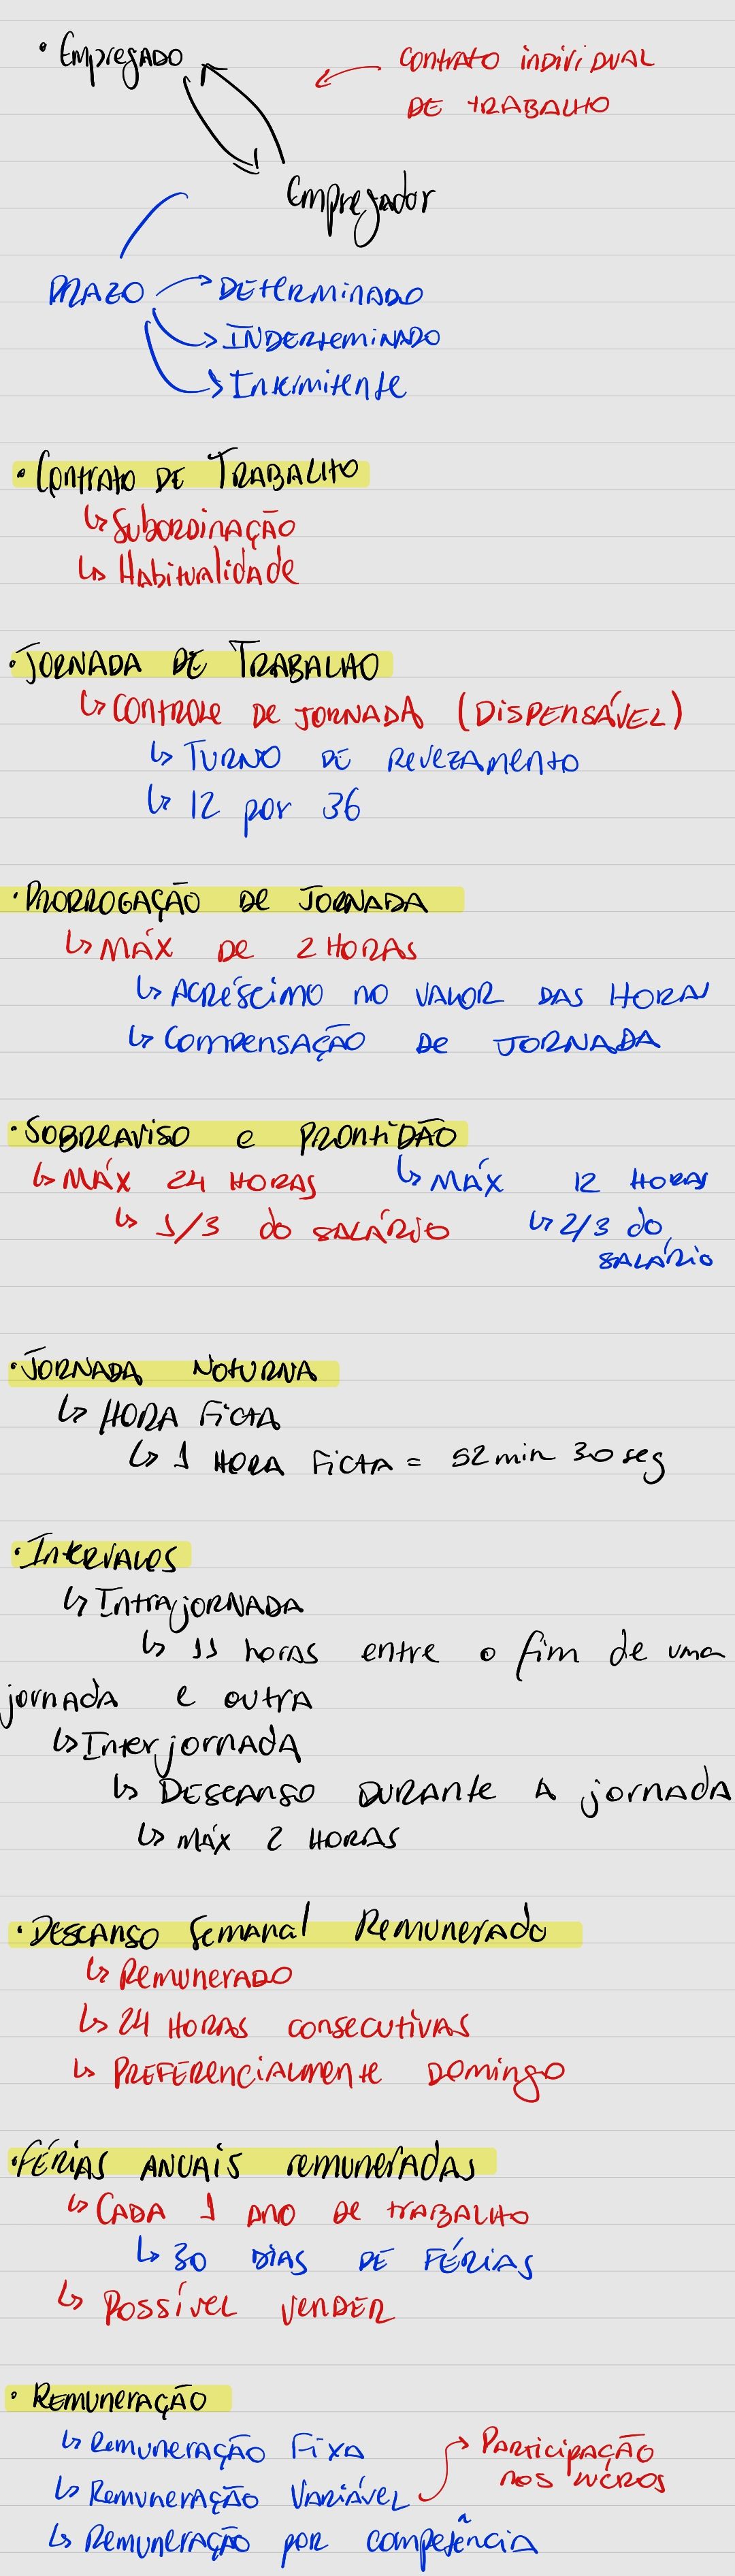 • Empregado
contrato individual
de trabalho
Empregador
Prazo
Determinado
Inderteminado
Intermitente
• Contrato de Trabalho
↳ Subordinação
↳ Habitualidade
• Jornada de Trabalho
↳ Controle de jornada (dispensável)
↳ Turno de revezamento
↳ 12 por 36
• Prorrogação de jornada
↳ Máx de 2 horas
↳ Acréscimo no valor das horas
↳ Compensação de jornada
• Sobreaviso e prontidão
↳ Máx 24 horas ↳ Máx 12 horas
↳ 1/3 do salário ↳ 2/3 do
salário
• Jornada noturna
↳ Hora ficta
↳ 1 hora ficta = 52 min 30 seg
• Intervalos
↳ Intrajornada
↳ 11 horas entre o fim de uma
jornada e outra
↳ Interjornada
↳ Descanso durante a jornada
↳ Máx 2 horas
• Descanso Semanal Remunerado
↳ Remunerado
↳ 24 horas consecutivas
↳ Preferencialmente domingo
• Férias anuais remuneradas
↳ Cada 1 ano de trabalho
↳ 30 dias de férias
↳ Possível vender
• Remuneração
↳ Remuneração fixa
↳ Remuneração variável → Participação
nos lucros
↳ Remuneração por competência